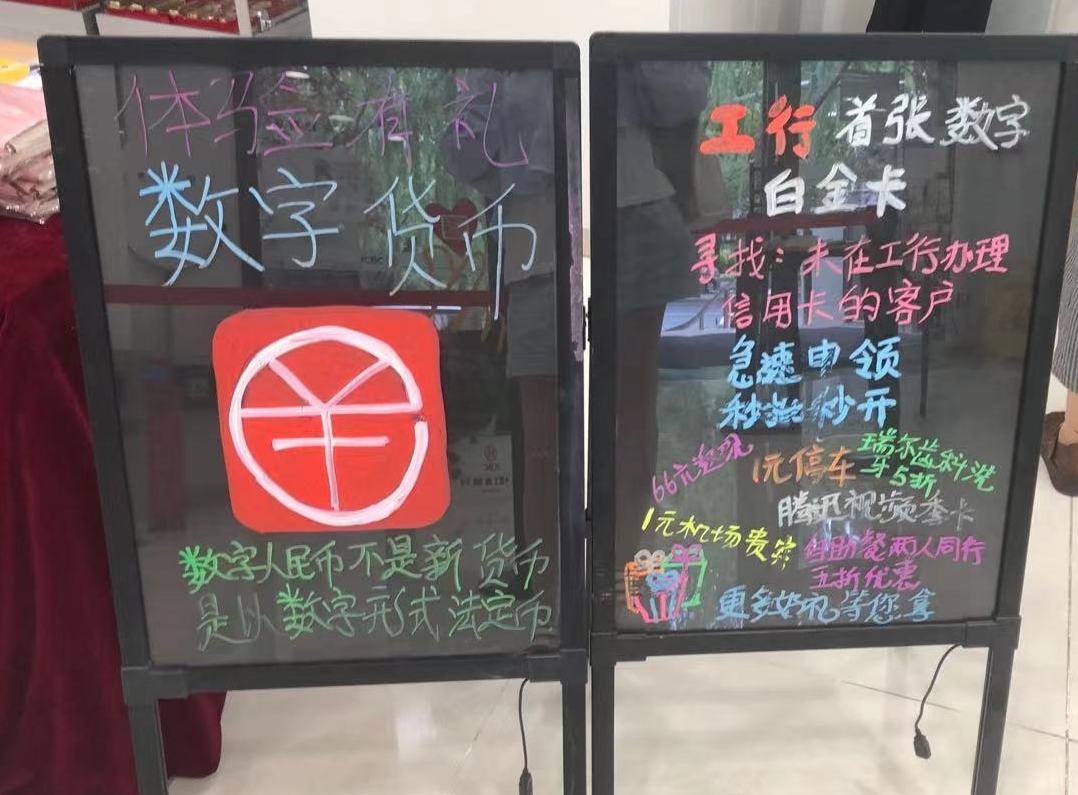 体验有礼
数字货币
数字人民币不是新货币
是以数字形式法定币
工行首张数字
白金卡
寻找：未在工行办理
信用卡的客户
急速申领
秒批秒开
66元返现
1元停车
瑞尔齿科洗
牙5折
腾讯视频季卡
1元机场贵宾
自助餐两人同行
五折优惠
更多好礼等您拿